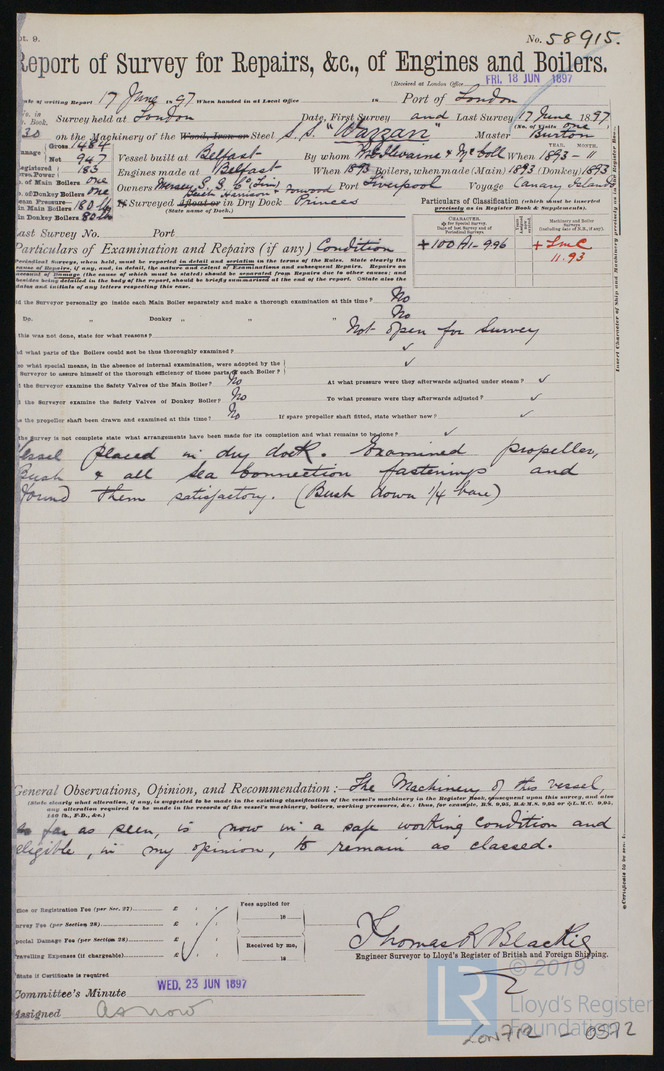 pt. 9.
No. 58915.
Report of Survey for Repairs, &c., of Engines and Boilers.
(Received at London Office
FRI. 18 JUN 1897
Date of writing Report 17 June 1897 When handed in at Local Office 18 Port of London
No. in Reg. Book.
Survey held at London Date, First Survey and Last Survey 17 June 1897
(No. of Visits one)
30 on the Machinery of the Wood, Iron or Steel S.S. "Wazzan" Master Burton
Gross 1484
Net 947
Vessel built at Belfast By whom McIlwaine & McColl When 1893 - 11
YEAR. MONTH.
Registered 183
Engines made at Belfast When 1893 Boilers, when made (Main) 1893 (Donkey) 1893
No. of Main Boilers one
Owners Mersey S.S. Co (Lim) Port Liverpool Voyage Canary Islands
No. of Donkey Boilers one
Steam Pressure
in Main Boilers 180 lb
in Donkey Boilers 80 lb
If Surveyed Afloat or in Dry Dock Princes
(State name of Dock.)
Particulars of Classification (which must be inserted precisely as in Register Book & Supplements).
Last Survey No. Port
CHARACTER.
Machinery and Boiler Surveys
+100A1-9.96
+LMC
11.93
Particulars of Examination and Repairs (if any) Condition
Periodical Surveys, when held, must be reported in detail and seriatim in the terms of the Rules. State clearly the
cause of Repairs, if any, and, in detail, the nature and extent of Examinations and subsequent Repairs. Repairs on
account of Damage (the cause of which must be stated) should be separated from Repairs due to other causes; and
besides being detailed in the body of the report, should be briefly summarised at the end of the report. State also the
dates and initials of any letters respecting this case.
Did the Surveyor personally go inside each Main Boiler separately and make a thorough examination at this time? No
Do. " Donkey " " " No
If this was not done, state for what reasons? Not open for Survey
And what parts of the Boilers could not be thus thoroughly examined? ✓
Also what special means, in the absence of internal examination, were adopted by the
Surveyor to assure himself of the thorough efficiency of those parts of each Boiler? ✓
Did the Surveyor examine the Safety Valves of the Main Boiler? No At what pressure were they afterwards adjusted under steam? ✓
Did the Surveyor examine the Safety Valves of Donkey Boiler? No To what pressure were they afterwards adjusted? ✓
Has the propeller shaft been drawn and examined at this time? No If spare propeller shaft fitted, state whether new? ✓
If the Survey is not complete state what arrangements have been made for its completion and what remains to be done? ✓
Vessel placed in dry dock. Examined propeller,
Bush & all sea connection fastenings and
found them satisfactory. (Bush down 1/4 bare)
General Observations, Opinion, and Recommendation:— The Machinery of this vessel,
(State clearly what alteration, if any, is suggested to be made in the existing classification of the vessel's machinery in the Register Book, consequent upon this survey, and also
any alteration required to be made in the records of the vessel's machinery, boilers, working pressures, &c.; thus, for example, B.S. 9,95, B.&M.S. 9,95 or +L.M.C. 9,95,
140 lb., F.D., &c.)
as far as seen, is now in a safe working condition and
eligible, in my opinion, to remain as classed.
Office or Registration Fee (per Sec. 27) £
Survey Fee (per Section 28) £
Special Damage Fee (per Section 28) £
Travelling Expenses (if chargeable) £
Fees applied for
18
Received by me,
18
Thomas R Blackie
Engineer Surveyor to Lloyd's Register of British and Foreign Shipping.
State if Certificate is required
Committee's Minute WED. 23 JUN 1897
Assigned as now
LR
© 2019
Lloyd's Register
Foundation
LON712 - 0572